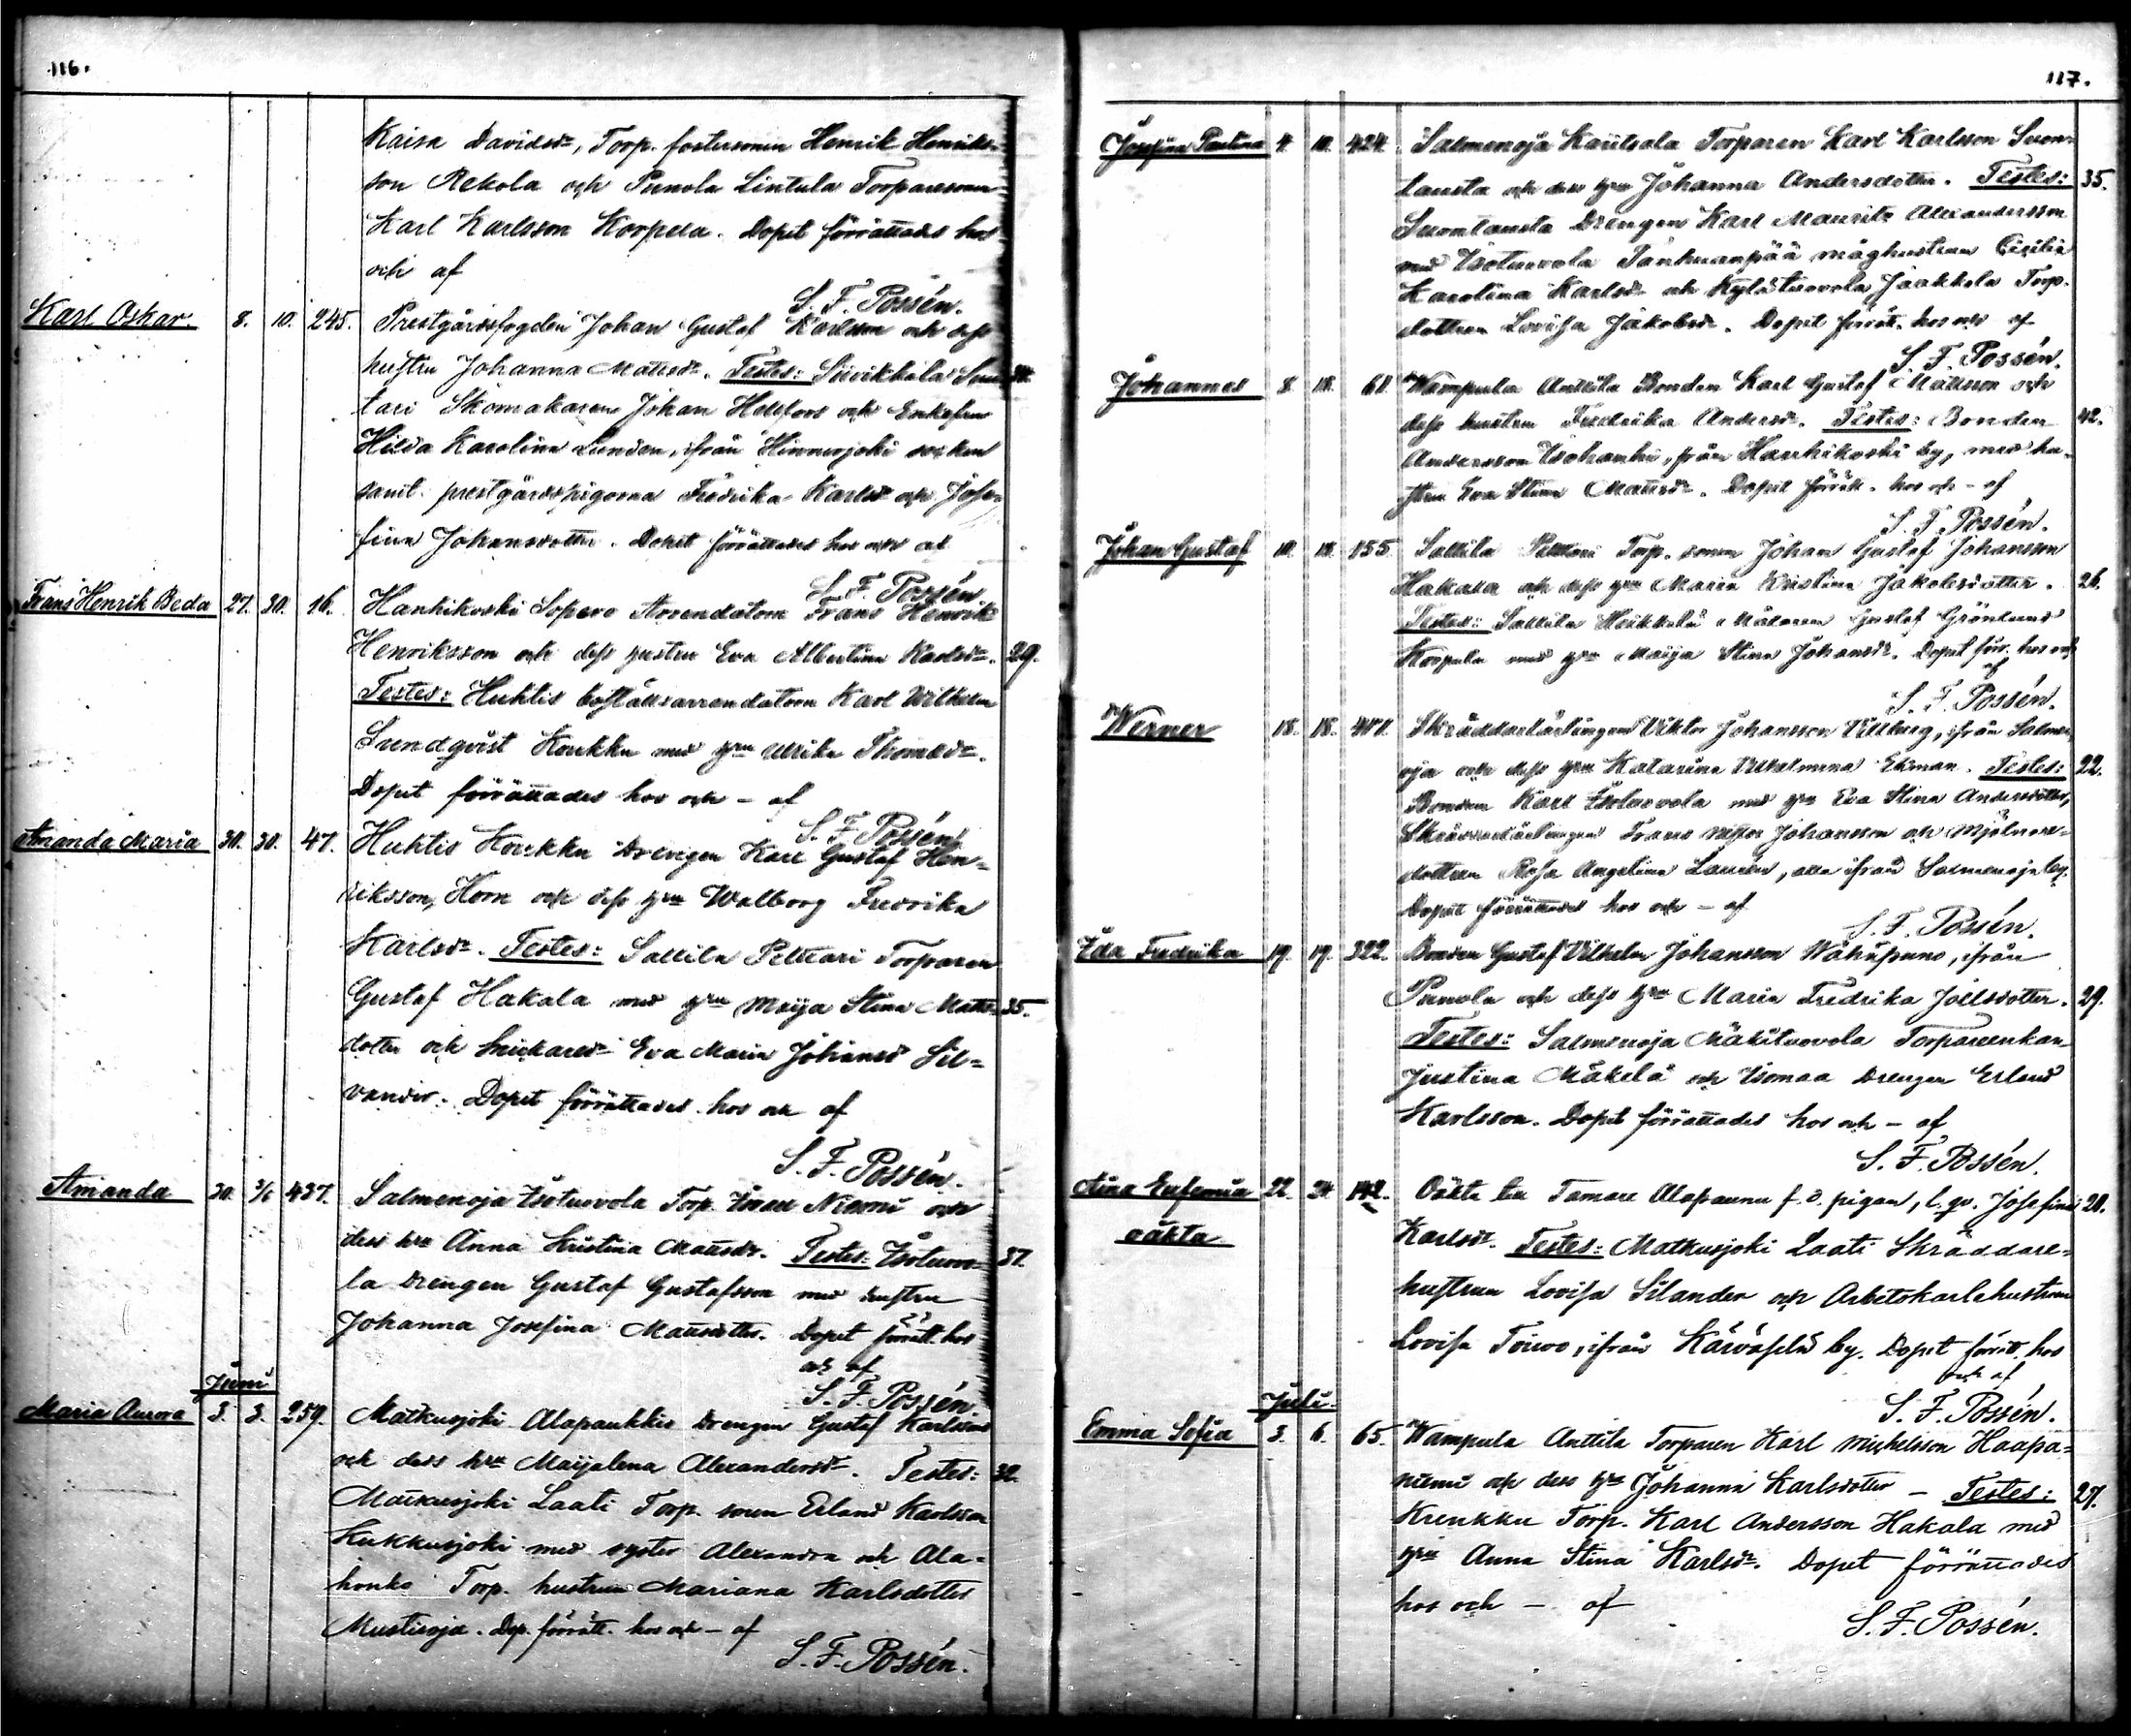 116.
Kaisa Davidsdr, Torp. fostersonen Henrik Henriks-
son Rekola och Punola Lintula Torparesonen
Karl Karlsson Korpela. Dopet förrättades hos
och af
S. F. Possén.
Karl Oskar. 8. 10. 245. Prestgårdsfogden Johan Gustaf Karlsson och dess
hustru Johanna Mattsdr. Testes: Siivikkala
tari Skomakaren Johan Hellfors och Enkefru
Hilda Karolina Linden, ifrån Hinnerjoki socken
samt prestgårdspigorna Fredrika Karlsdr och Jose-
fina Johansdotter. Dopet förrättades hos och af
S. F. Possén.
Frans Henrik Beda 27. 30. 16. Hanhikoski Sopero Arrendatorn Frans Henrik
Henriksson och dess hustru Eva Albertina Karlsdr. 29.
Testes: Huhtis boställsarrendatorn Karl Wilhelm
Sundqvist Koukku med hru Ulrika Thomasdr.
Dopet förrättades hos och - af
S. F. Possén.
Amanda Maria 30. 30. 47. Huhtis Koukku Drengen Karl Gustaf Hen-
riksson Horn och dess hru Walborg Fredrika
Karlsdr. Testes: Sallila Pelttari Torparen
Gustaf Hakala med hru Maija Stina Matts- 35.
dotter och Snickaredr Eva Maria Johansd Sil-
vander. Dopet förrättades hos och af
S. F. Possén.
Amanda 30. 3/6 437. Salmenoja Isotuovola Torp. Isaac Niemi och
dess hru Anna Kristina Mattsdr. Testes: Isotuovo- 37.
la Drengen Gustaf Gustafsson med hustru
Johanna Josefina Mattsdotter. Dopet förrätt. hos
och af
S. F. Possén.
Juni
Maria Aurora 3. 3. 259. Matkusjoki Alapaukkis Drengen Gustaf Karlsson
och dess hru Maijalena Alexandersdr. Testes: 32.
Matkusjoki Laati Torp. sonen Erland Karlsson
Kukkusjoki med syster Alexandra och Ala-
honko Torp. hustrun Mariana Karlsdotter
Mustioja. Dop. förrätt. hos och - af
S. F. Possén.
117.
Josefina Paulina 4. 10. 424. Salmenoja Kauttala Torparen Karl Karlsson Suon-
tausta och dess hru Johanna Andersdotter. Testes: 35.
Suontausta Drengen Karl Maurits Alexandersson
med Isotuovola Tanhuanpää måghustrun Cecilia
Karolina Karlsdr och Kylätuovola Jaakkola Torp.
dottren Lovisa Jakobsdr. Dopet förrätt. hos och af
S. F. Possén.
Johannes 8. 18. 61. Wampula Anttila Bonden Karl Gustaf Mattsson och
dess hustru Fredrika Andersdr. Testes: Bonden 42.
Andersson Isohanhi, från Hanhikoski by, med hu-
stru Eva Stina Mattsdr. Dopet förrätt. hos och - af
S. F. Possén.
Johan Gustaf 10. 18. 155. Sallila Pelttari Torp. sonen Johan Gustaf Johansson
Hakala och dess hru Maria Kristina Jakobsdotter. 26.
Testes: Sallila Heikkilä Målaren Gustaf Grönlund
Korpela med hru Maija Stina Johansdr. Dopet förr. hos och
af
S. F. Possén.
Werner 18. 18. 401. Skräddarlärlingen Viktor Johansson Villberg, ifrån Salmen-
oja och dess hru Katarina Vilhelmina Ekman. Testes: 22.
Bonden Karl Isotuovola med hru Eva Stina Andersdotter,
Skräddarlärlingen Frans Viktor Johansson och Mjölnare-
dottren Rosa Angelina Laurén, alla ifrån Salmenoja by.
Dopet förrättades hos och - af
S. F. Possén.
Ida Fredrika 19. 19. 322. Bonden Gustaf Vilhelm Johansson Wähäpuno, ifrån
Punola och dess hru Maria Fredrika Joelsdotter. 29.
Testes: Salmenoja Mäkituovola Torpareenkan
Justina Mäkelä och Isomaa Drengen Erland
Karlsson. Dopet förrättades hos och - af
S. F. Possén.
Aina Eufemia 22. 24. 142. Oäkta till Tamare Alapaunu f.d. pigan, l. qv. Josefina 20.
oäkta
Karlsdr. Testes: Matkusjoki Laati Skräddare-
hustrun Lovisa Silander och Arbetskarlshustrun
Lovisa Toivo, ifrån Kärväselä by. Dopet förrätt. hos
och af
S. F. Possén.
Juli.
Emma Sofia 3. 6. 65. Wampula Anttila Torparen Karl Michelsson Haapa-
niemi och dess hru Johanna Karlsdotter - Testes: 27.
Krenkku Torp. Karl Andersson Hakala med
hru Anna Stina Karlsdr. Dopet förrättades
hos och - af
S. F. Possén.